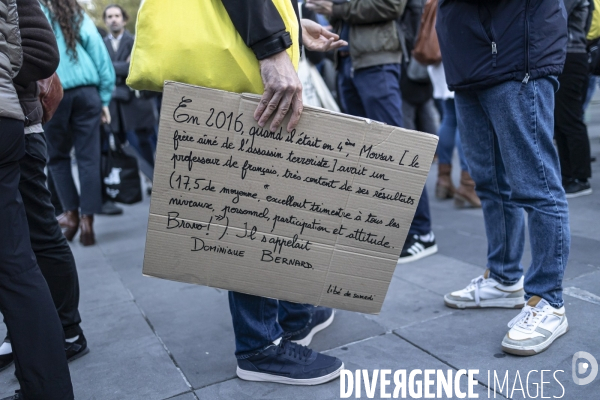 En 2016, quand il était en 4ème, Movsar [le
frère aîné de l'assassin terroriste] avait un
professeur de français, très content de ses résultats
(17,5 de moyenne, "excellent trimestre à tous les
niveaux, personnel, participation et attitude.
Bravo!") Il s'appelait
Dominique Bernard.
libé de samedi
DIVERGENCE IMAGES